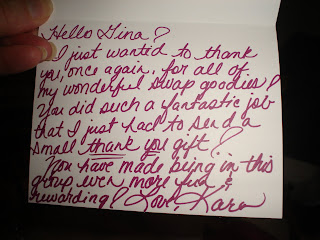 Hello Gina!
I just wanted to thank
you, once again, for all of
my wonderful swap goodies!
You did such a fantastic job
that I just had to send a
small thank you gift!
You have made being in this
group even more fun &
rewarding! Love, Kara